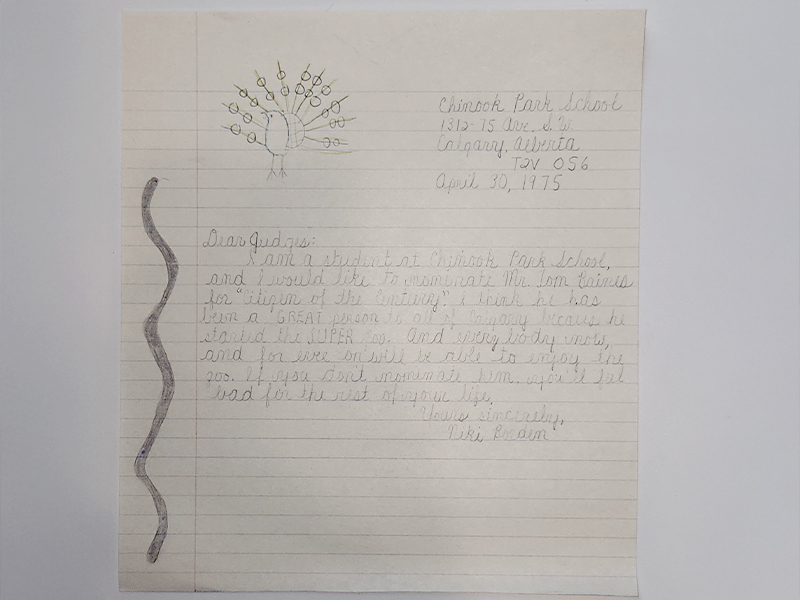 Chinook Park School
1312-75 Ave. S.W.
Calgary, Alberta
T2V 0S6
April 30, 1975
Dear Judges:
I am a student at Chinook Park School,
and I would like to nominate Mr. Tom Baines
for "Citizen of the Century". I think he has
been a GREAT person to all of Calgary because he
started the SUPER zoo. And every body now,
and for ever on will be able to enjoy the
zoo. If you don't nominate him, you'll feel
bad for the rest of your life.
Yours sincerely,
Niki Borden